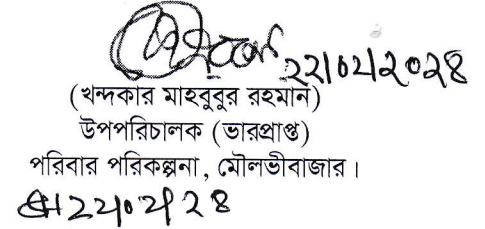 ২২/০২/২০২৪
(খন্দকার মাহবুবুর রহমান)
উপপরিচালক (ভারপ্রাপ্ত)
পরিবার পরিকল্পনা, মৌলভীবাজার।
২২/০২/২৪